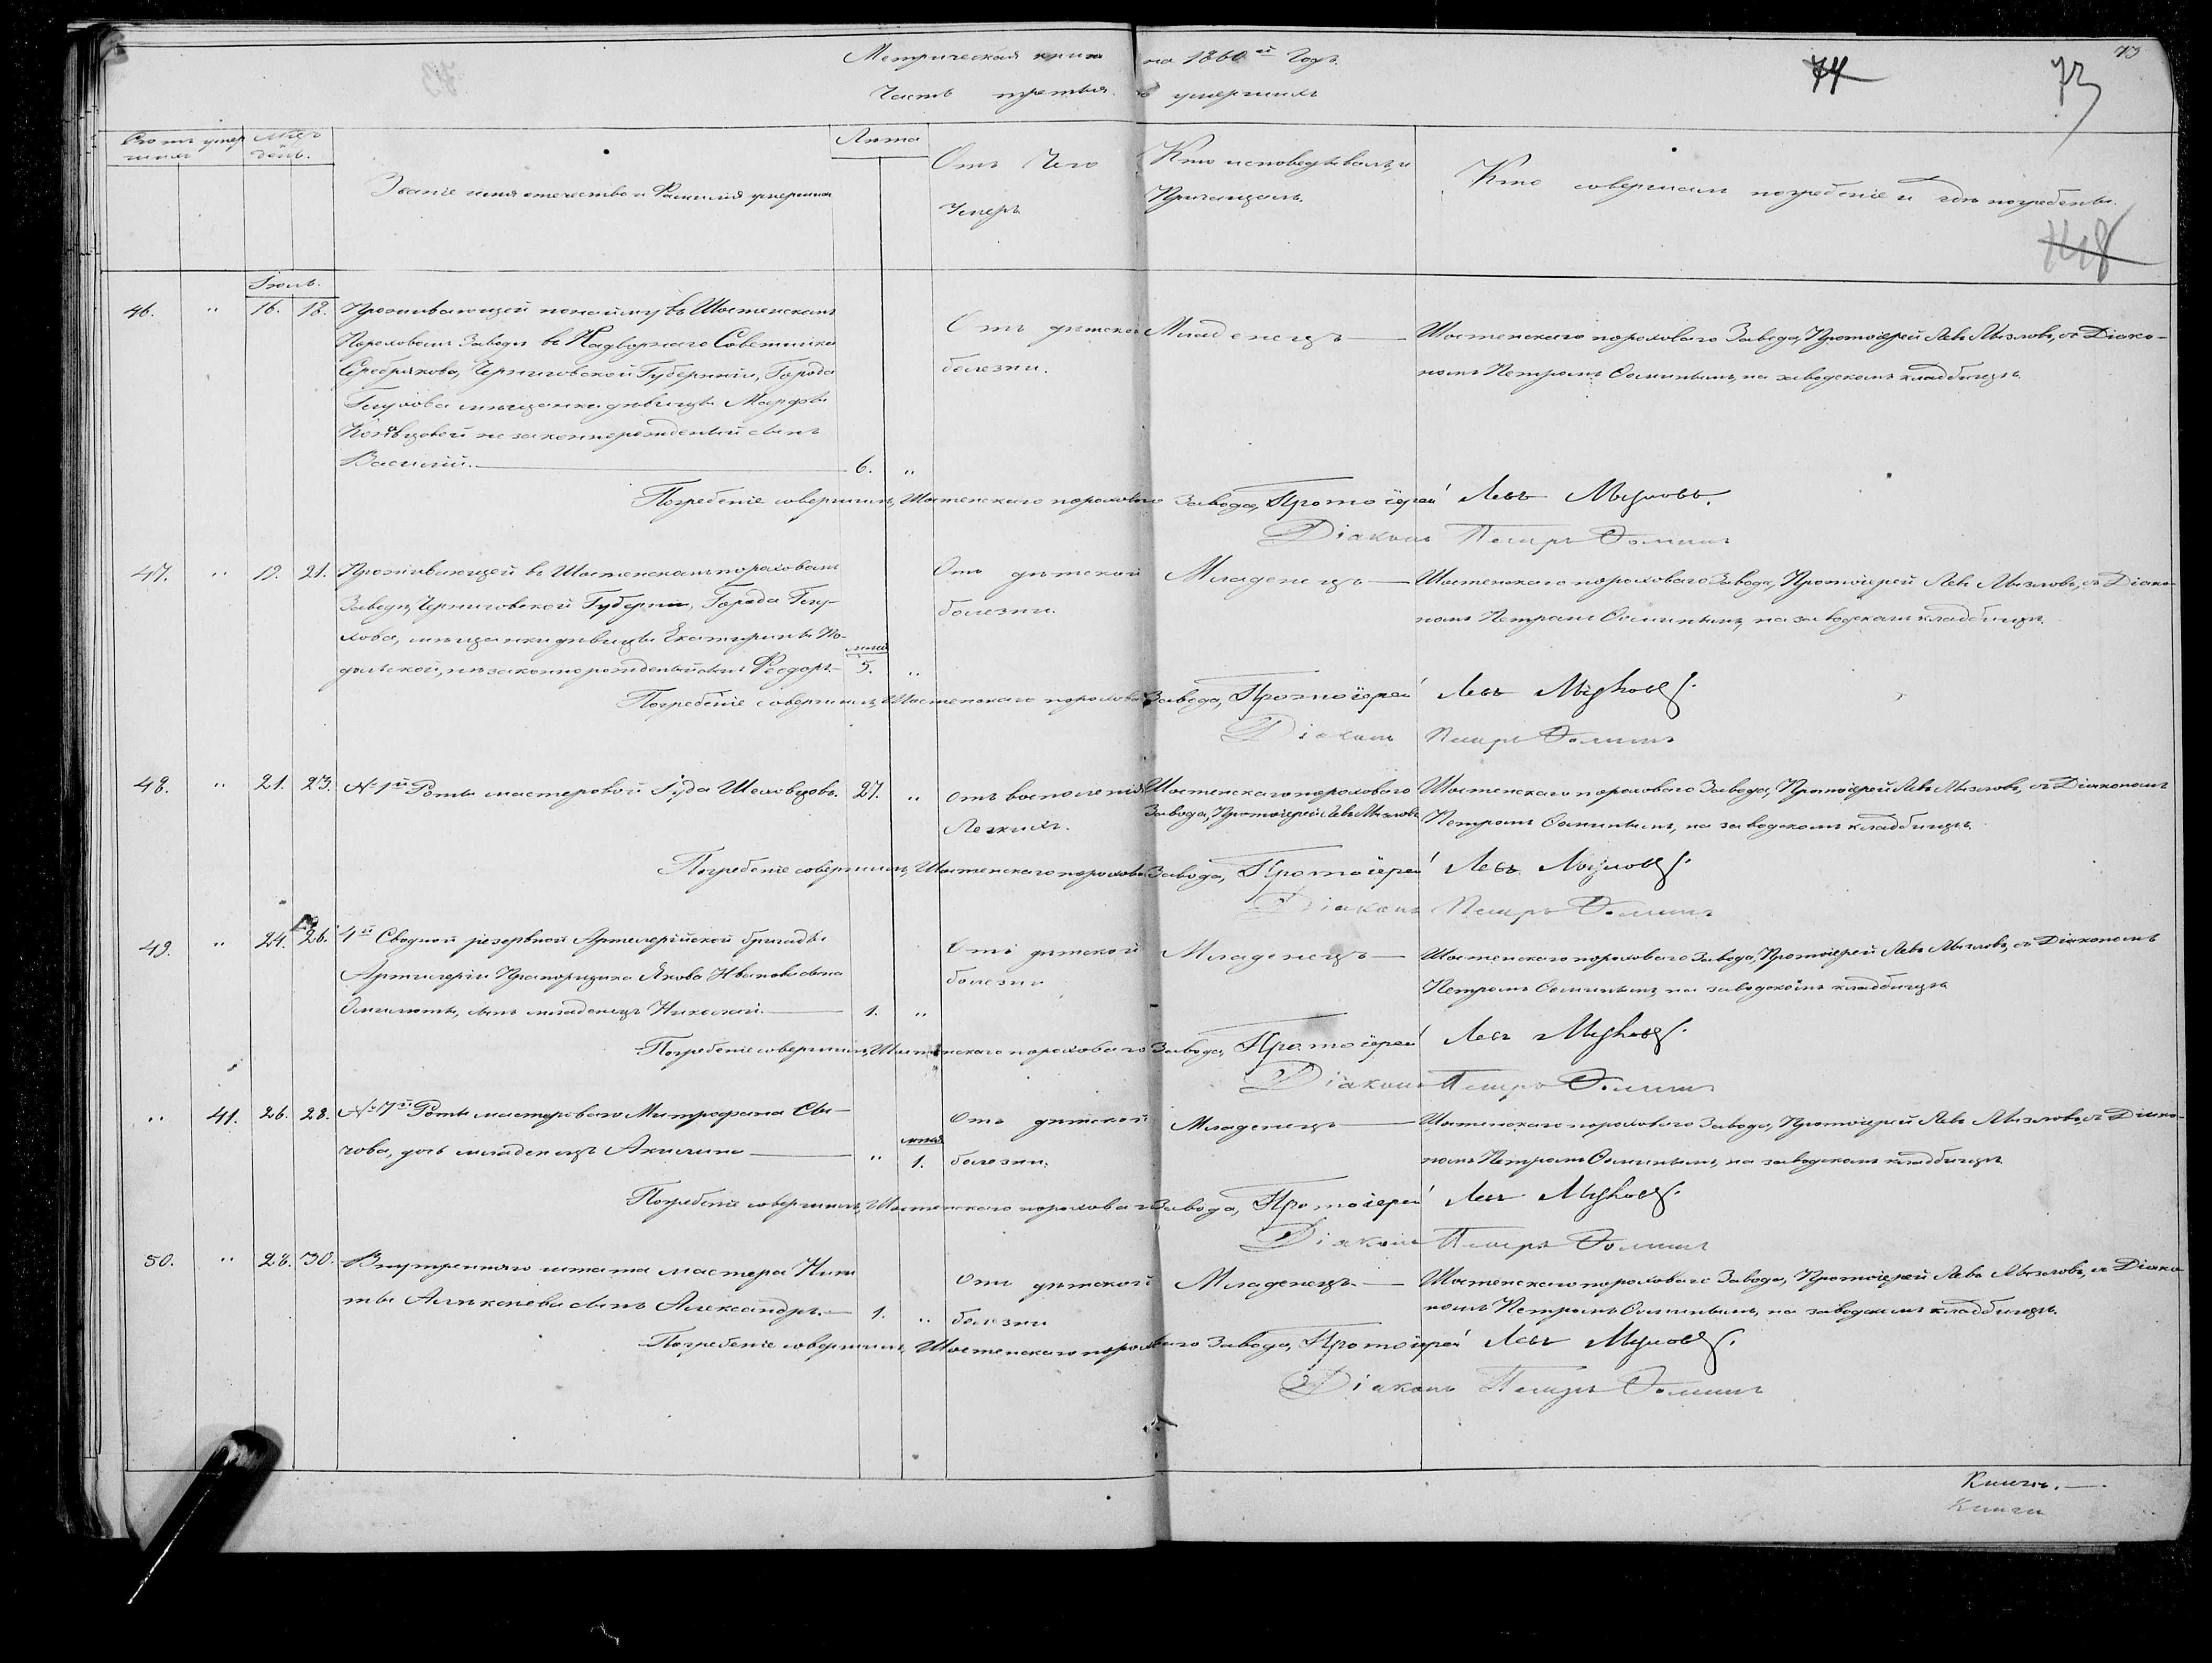 Метрическая книга на 1860й Годъ.
Часть третья о умершихъ
74
73
73
Мцъ
день.
Лѣта
Званіе имя отечество и Фамилія умершихъ
Отъ Чего
Умеръ
Кто исповедывалъ, и
Причащалъ.
Кто совершалъ погребеніе и гдѣ погребены.
Іюль.
46. " 16. 18. Проживающей по найму въ Шостенскомъ
Пороховомъ Заводѣ Надворнаго Советника
Серебрякова, Черниговской Губерніи, Города
Глухова мѣщанки дѣвицы Марфы
незаконнорожденный сынъ
Василій. 6. "
Отъ дѣтской
болезни.
Младенецъ
Шостенскаго пороховаго Завода, Протоіерей Левъ Мызловъ, съ Діако-
номъ Петромъ Ѳоминымъ, на заводскомъ кладбищѣ.
Погребеніе совершилъ, Шостенскаго пороховаго Завода, Протоіерей Левъ Мызловъ.
Діаконъ Петръ Ѳоминъ
47. " 19. 21. Проживающей въ Шостенскомъ пороховомъ
Заводѣ, Черниговской Губерніи, Города Глу-
хова, мѣщанки дѣвицы Екатерины По-
дольской, незаконнорожденный сынъ Феодоръ. 5. "
Отъ дѣтской
болезни.
Младенецъ
Шостенскаго пороховаго Завода, Протоіерей Левъ Мызловъ, съ Діако-
номъ Петромъ Ѳоминымъ, на заводскомъ кладбищѣ.
Погребеніе совершилъ, Шостенскаго пороховаго Завода, Протоіерей Левъ Мызловъ.
Діаконъ Петръ Ѳоминъ
48. " 21. 23. № 1й Роты мастеровой Іуда Шелховцовъ. 27. "
Отъ восполенія
Легкихъ.
Шостенскаго пороховаго
Завода, Протоіерей Левъ Мызловъ
Шостенскаго пороховаго Завода, Протоіерей Левъ Мызловъ, съ Діакономъ
Петромъ Ѳоминымъ, на заводскомъ кладбищѣ.
Погребеніе совершилъ, Шостенскаго пороховаго Завода, Протоіерей Левъ Мызловъ.
Діаконъ Петръ Ѳоминъ
49. " 24. 26. 4й Сводной резервной Артелерійской бригады
Артилеріи Прапорщика Якова Иванова сына
сынъ младенецъ Николай. 1. "
Отъ дѣтской
болезни
Младенецъ
Шостенскаго пороховаго Завода, Протоіерей Левъ Мызловъ, съ Діакономъ
Петромъ Ѳоминымъ, на заводскомъ кладбищѣ
Погребеніе совершилъ, Шостенскаго пороховаго Завода, Протоіерей Левъ Мызловъ.
Діаконъ Петръ Ѳоминъ
" 41. 26. 28. Роты мастероваго Митрофана Сы-
чова, дочь младенецъ Акилина " 1.
Отъ дѣтской
болезни.
Младенецъ
Шостенскаго пороховаго Завода, Протоіерей Левъ Мызловъ, съ Діако-
номъ Петромъ Ѳоминымъ, на заводскомъ кладбищѣ.
Погребеніе совершилъ, Шостенскаго пороховаго Завода, Протоіерей Левъ Мызловъ.
Діаконъ Петръ Ѳоминъ
50. " 28. 30. Внутренняго штата мастера Ники
ты сынъ Александръ. 1. "
Отъ дѣтской
болезни
Младенецъ
Шостенскаго пороховаго Завода, Протоіерей Левъ Мызловъ, съ Діако
номъ Петромъ Ѳоминымъ, на заводскомъ кладбищѣ.
Погребеніе совершилъ, Шостенскаго пороховаго Завода, Протоіерей Левъ Мызловъ.
Діаконъ Петръ Ѳоминъ